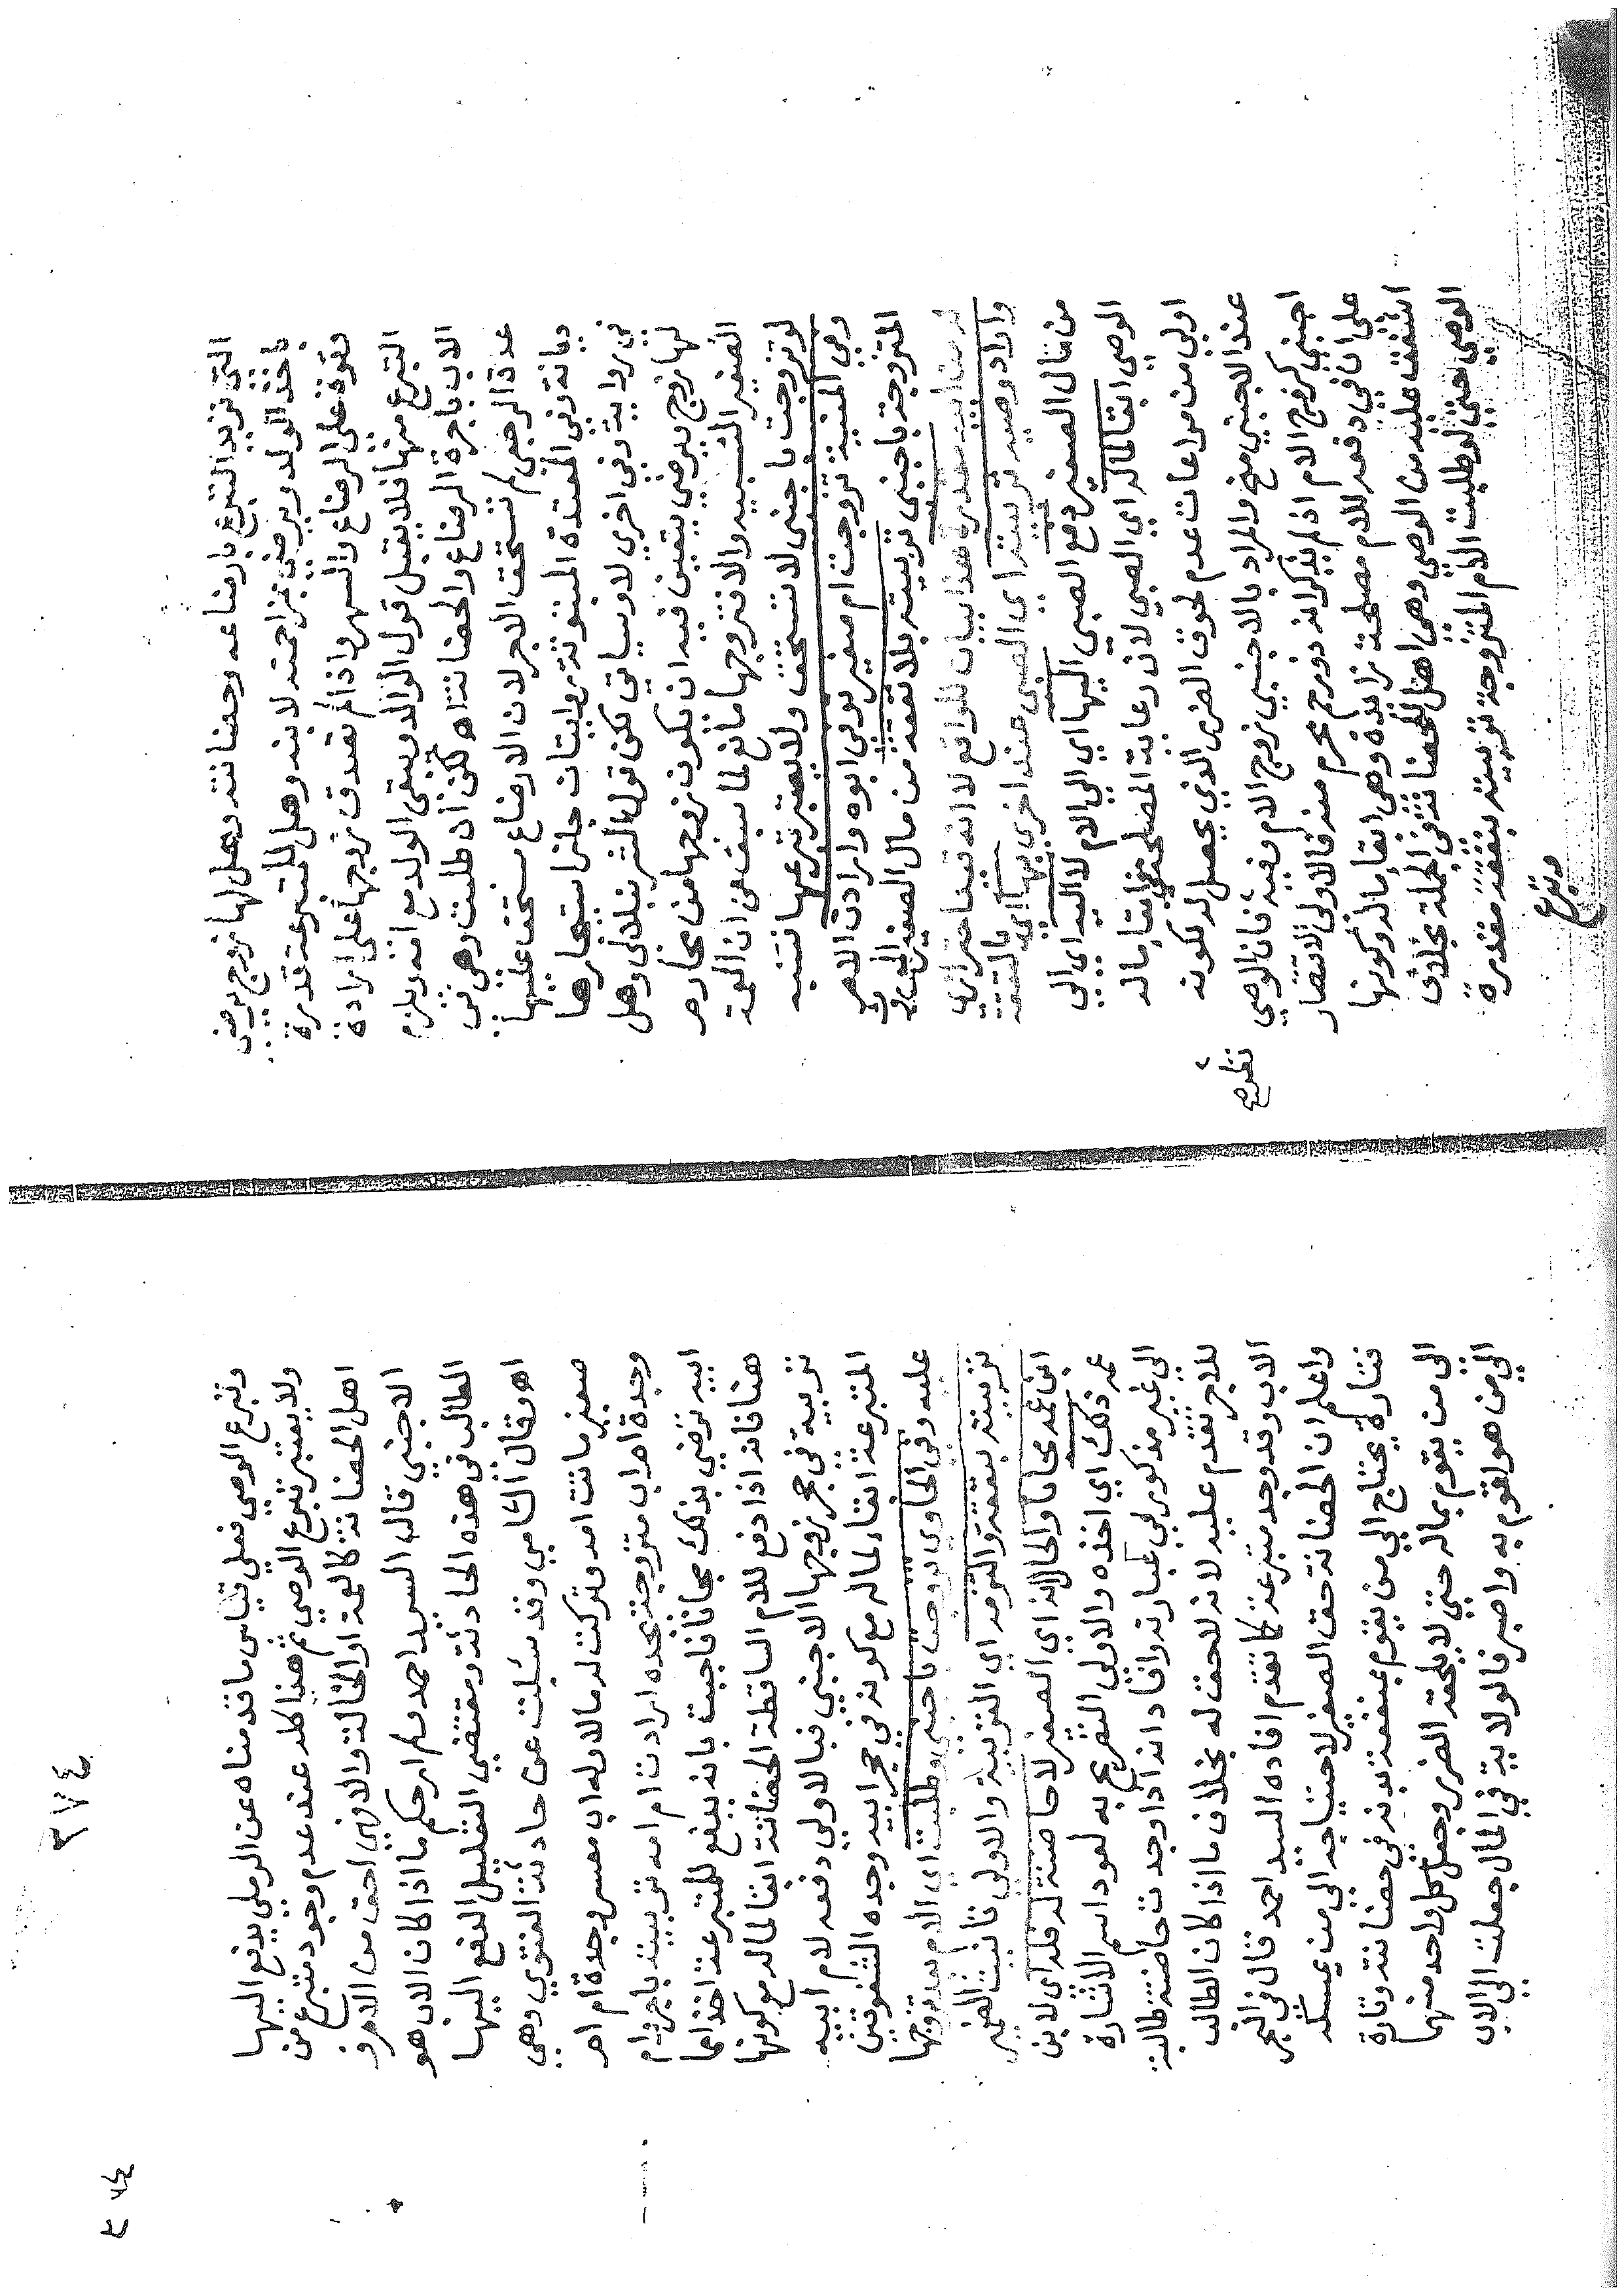 التي تريد التبرع بارضاعه وحضانته وهل لها زوج يرضى
باخذ الولد ويرضى بمزاحمته لابنه وهل للمتبرعة قدرة
وقوة على الرضاع والسهر واذا لم تصدق زوجها على ارادة
التبرع منها فلا يقبل قول الوالد ويبقى الولد مع امه ويلزم
الاب باجرة الرضاع والحضانة اه لكن ان طلبت وهي في
عدة الرجعي لم تستحق الاجر لان الارضاع مستحق عليها
ديانة وفي المعتدة المبتوتة روايتان جاز استيجارها
في رواية وفي اخرى لا وسياتي لكن قول الشرنبلالي وهل
لها زوج يرضى يتعين فيه ان يكون زوجها من محارم
الصغير النسبية والا فتزوجها مانع لما سبق من ان العمة
لو تزوجت باجنبي لا تستحق ولا يعتبر تبرعها تنبيه
وفي المنية تزوجت ام صغير توفى ابوه وارادت الام
المتزوجة باجنبي تربيته بلا نفقة من مال الصغير
له من ابيه مقدرة هذا بيان للواقع لا انه قيد احترازي
واراد وصيه تربيته اي الصبي عند اخرى بها اي بالنفقة
من مال الصغير دفع الصبي اليها اي الى الام لا اليه اي الى
الوصي ابقا لماله اي الصبي لان رعاية المصلحة في ابقاء ماله
اولى من مراعات عدم لحوق الضرر الذي يحصل له لكونه
عند الاجنبي منح والمراد بالاجنبي زوج الام وفيه فان الوصي
نظر صح
اجنبي كزوج الام اذ لم يذكر انه ذو رحم محرم منه فالاولى الاقتصار
على ان في دفعه للام مصلحة زائدة وهي ابقا ماله وكونها
اشفق عليه من الوصي وهي اهل للحضانة في الجملة بخلاف
الوصي حتى لو طلبت الام المتزوجة تربيته بنفقة مقدرة
وتبرع
٣٧٤
وتبرع الوصي فعلى قياس ما قدمناه عن الرملي يدفع اليها
ولا يعتبر تبرع الوصي ثم هذا كله عند عدم وجود متبرع من
اهل الحضانة كالعمة او الخالة والا فهي احق من الام و
الاجنبي قاله السيد احمد ولم ار حكم ما اذا كان الاب هو
الطالب في هذه الحادثة ومقتضى التعليل الدفع اليها
اه وقال الشامي وقد سئلت عن حادثة الفتوى وهي
صغير ماتت امه وتركت له مالا وله اب معسر وجدة ام ام
وجدة ام اب متزوجة بجده ارادت ام امه تربيته باجر وام
ابيه ترضى بذلك مجانا فاجبت بانه يدفع للمتبرعة اخذا مما
هنا فانه اذا دفع للام الساقطة الحضانة ابقا لماله مع كونها
تربيه في حجر زوجها الاجنبي فبالاولى دفعه لام ابيه
المتبرعة ابقاء لماله مع كونه في حجر ابيه وجده الشفوقين
عليه وفي الحاوي تزوجت باجنبي وطلبت اي الام بعد تزوجها
تربيته بنفقة والتزمه اي التربية والاولى تانيث الضمير
ابن عمه مجانا والحال انه اي الصغير لا حاضنة له فله اي لابن
عمه ذلك اي اخذه والاولى التصريح به لعود اسم الاشارة
الى غير مذكور في عبارته وافاد انه اذا وجدت حاضنة طالبة
للاجر تقدم عليه لانه لا حق له بخلاف ما اذا كان الطالب
الاب وقد وجد متبرعة كما تقدم افاده السيد احمد قال في البحر
واعلم ان الحضانة حق الصغير لاحتياجه الى من يمسكه
فتارة يحتاج الى من يقوم بمنفعة بدنه في حضانته وتارة
الى من يقوم بماله حتى لا يلحقه الضرر وجعل كل واحد منهما
الى من هو اقوم به وابصر فالولاية في المال جعلت الى الاب